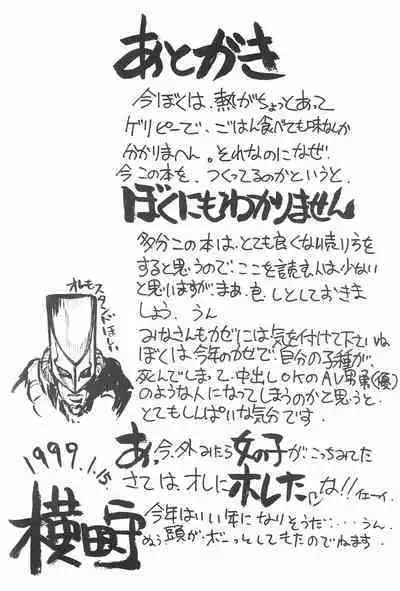 あとがき
今ぼくは、熱がちょっとあって
ゲリピーで、ごはん食べても味なんか
分かりまへん。それなのになぜ
今この本を、つくってるのかというと、
ぼくにもわかりません
多分この本は、とても良くない売りをう
すると思うので、ここを読む人は少ない
と思いますが、まぁ、しとしておきま
しょう。うん
みなさんもカゼには気を付けて下さいね
ぼくは、今年のカゼで、自分の子種が
死んでしまって、中出しOKのAV男優
のような人になってしまうのかと思うと、
とてもしんぱいな気分です。
オレもスタンドほしい
あ、今、外みたら女の子がこっちみてた
さては、オレにホレたな!!イェーイ
1999.1.15.
横田守
今年はいい年になりそうだ‥‥うん。
ぬぅ頭がボーっとしてきたのでねます。